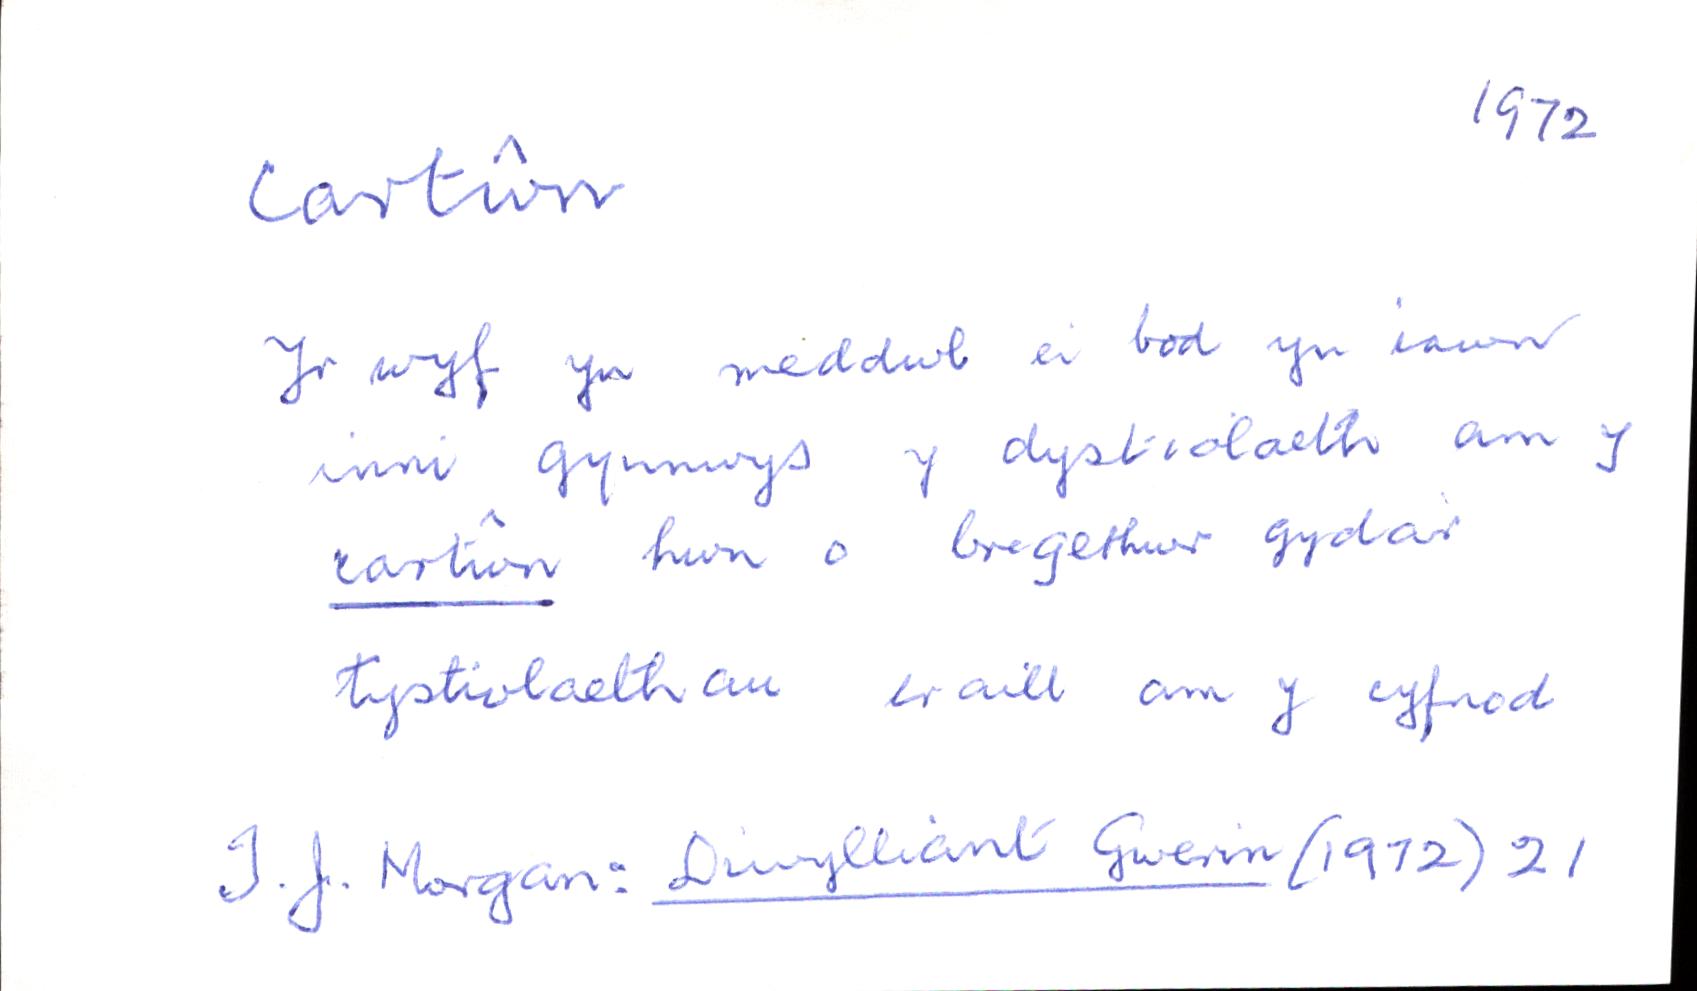 1972
Cartŵn
Yr wyf yn meddwl ei bod yn iawn
inni gynnwys y dystiolaeth am y
cartŵn hwn o bregethwr gyda'r
tystiolaethau eraill am y cyfnod
T. J. Morgan: Diwylliant Gwerin (1972) 21